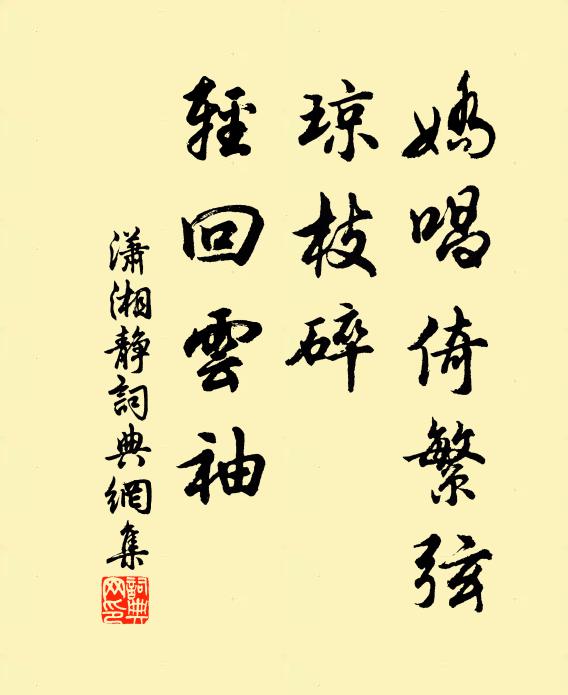 嬌唱倚繁弦
琼枝碎
輕回雲袖
瀟湘静詞典網集
詞典網印